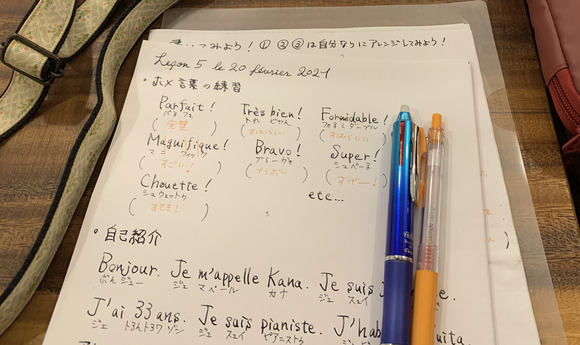 みよう! ① ② ③ は自分なりにアレンジしてみよう!
Leçon 5 le 20 février 2021
・ホメ言葉の練習
Parfait! Très bien! Formidable!
パるフェ トれ ビヤん フォるミダーブル
(完璧) (すばらしい) (すばらしい)
Magnifique! Bravo! Super!
マニフィック ブらーヴォ シュペーる
(すごい!) (ブラボー) (すげー!)
Chouette!
シュウェット
(すてき!)
etc...
・自己紹介
Bonjour. Je m'appelle Kana. Je suis
ボんジュー ジュ マペール カナ ジュ スュイ
J'ai 33 ans. Je suis pianiste. J'hab
ジェ トらんトトワ ザン ジュ スュイ ピアニストゥ